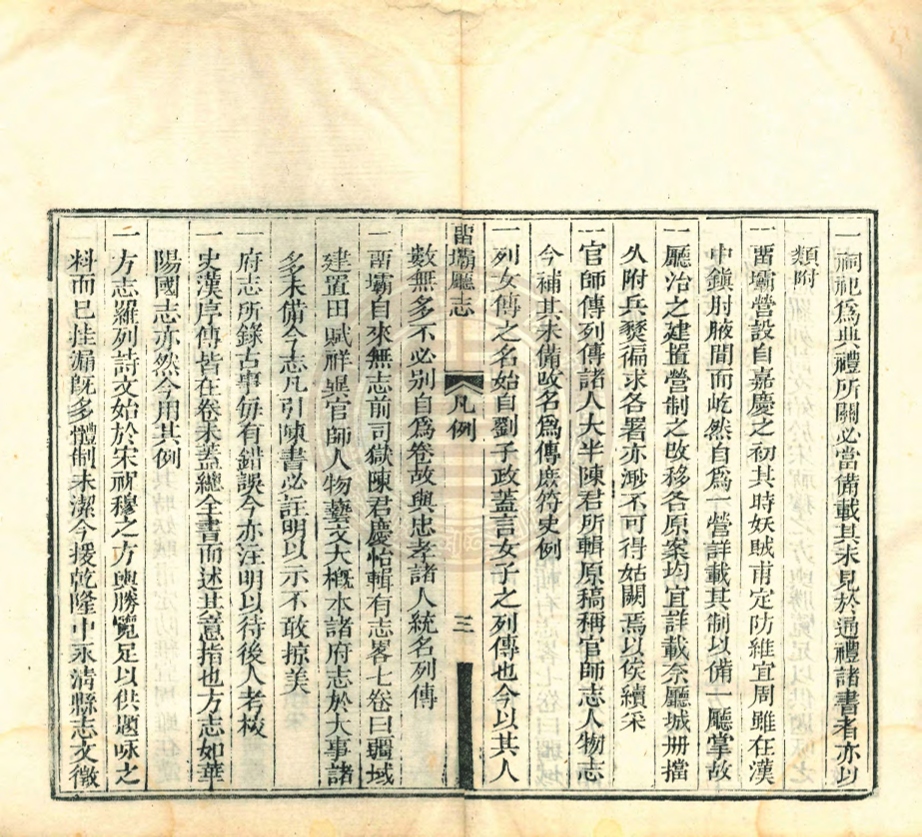 一祠祀爲典禮所關必當備載其未見於通禮諸書者亦以
類附
一畱壩營設自嘉慶之初其時妖賊甫定防維宜周雖在漢
中鎭肘腋間而屹然自爲一營詳載其制以備一廳掌故
一廳治之建置營制之改移各原案均宜詳載奈廳城冊擋
久附兵燹徧求各署亦渺不可得姑闕焉以俟續采
一官師傳列傳諸人大半陳君所輯原稿稱官師志人物志
今補其未備改名爲傳庶符史例
一列女傳之名始自劉子政蓋言女子之列傳也今以其人
畱壩廳志
凡例
三
數無多不必別自爲卷故與忠孝諸人統名列傳
一畱壩自來無志前司獄陳君慶怡輯有志畧七卷曰疆域
建置田賦祥異官師人物藝文大槪本諸府志於大事諸
多未備今志凡引陳書必註明以示不敢掠美
一府志所錄古事每有錯誤今亦注明以待後人考校
一史漢序傳皆在卷末蓋總全書而述其意指也方志如華
陽國志亦然今用其例
一方志羅列詩文始於宋祝穆之方輿勝覽足以供題咏之
料而已挂漏旣多體制未潔今援乾隆中永清縣志文徵